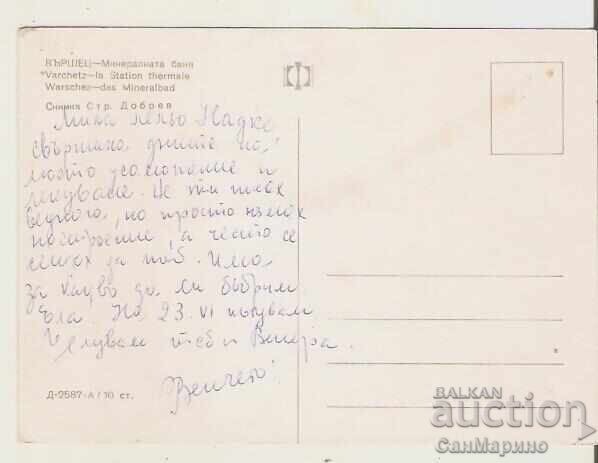 ВЪРШЕЦ—Минералната баня
Varchetz—la Station thermale
Warschez—das Mineralbad
Снимка Стр. Добрев
Мила лельо Надке
свършиха дните на
моето
лекуване. Не ти писах
веднага, но просто нямах
настроение, а често се
сещах за теб. Има
за какво да си бъбрим.
Ела. На 23. VI пътувам
Целувам теб и Венера.
Венчето
Д-2587-А / 10 ст.
BALKAN
auction
СанМарино